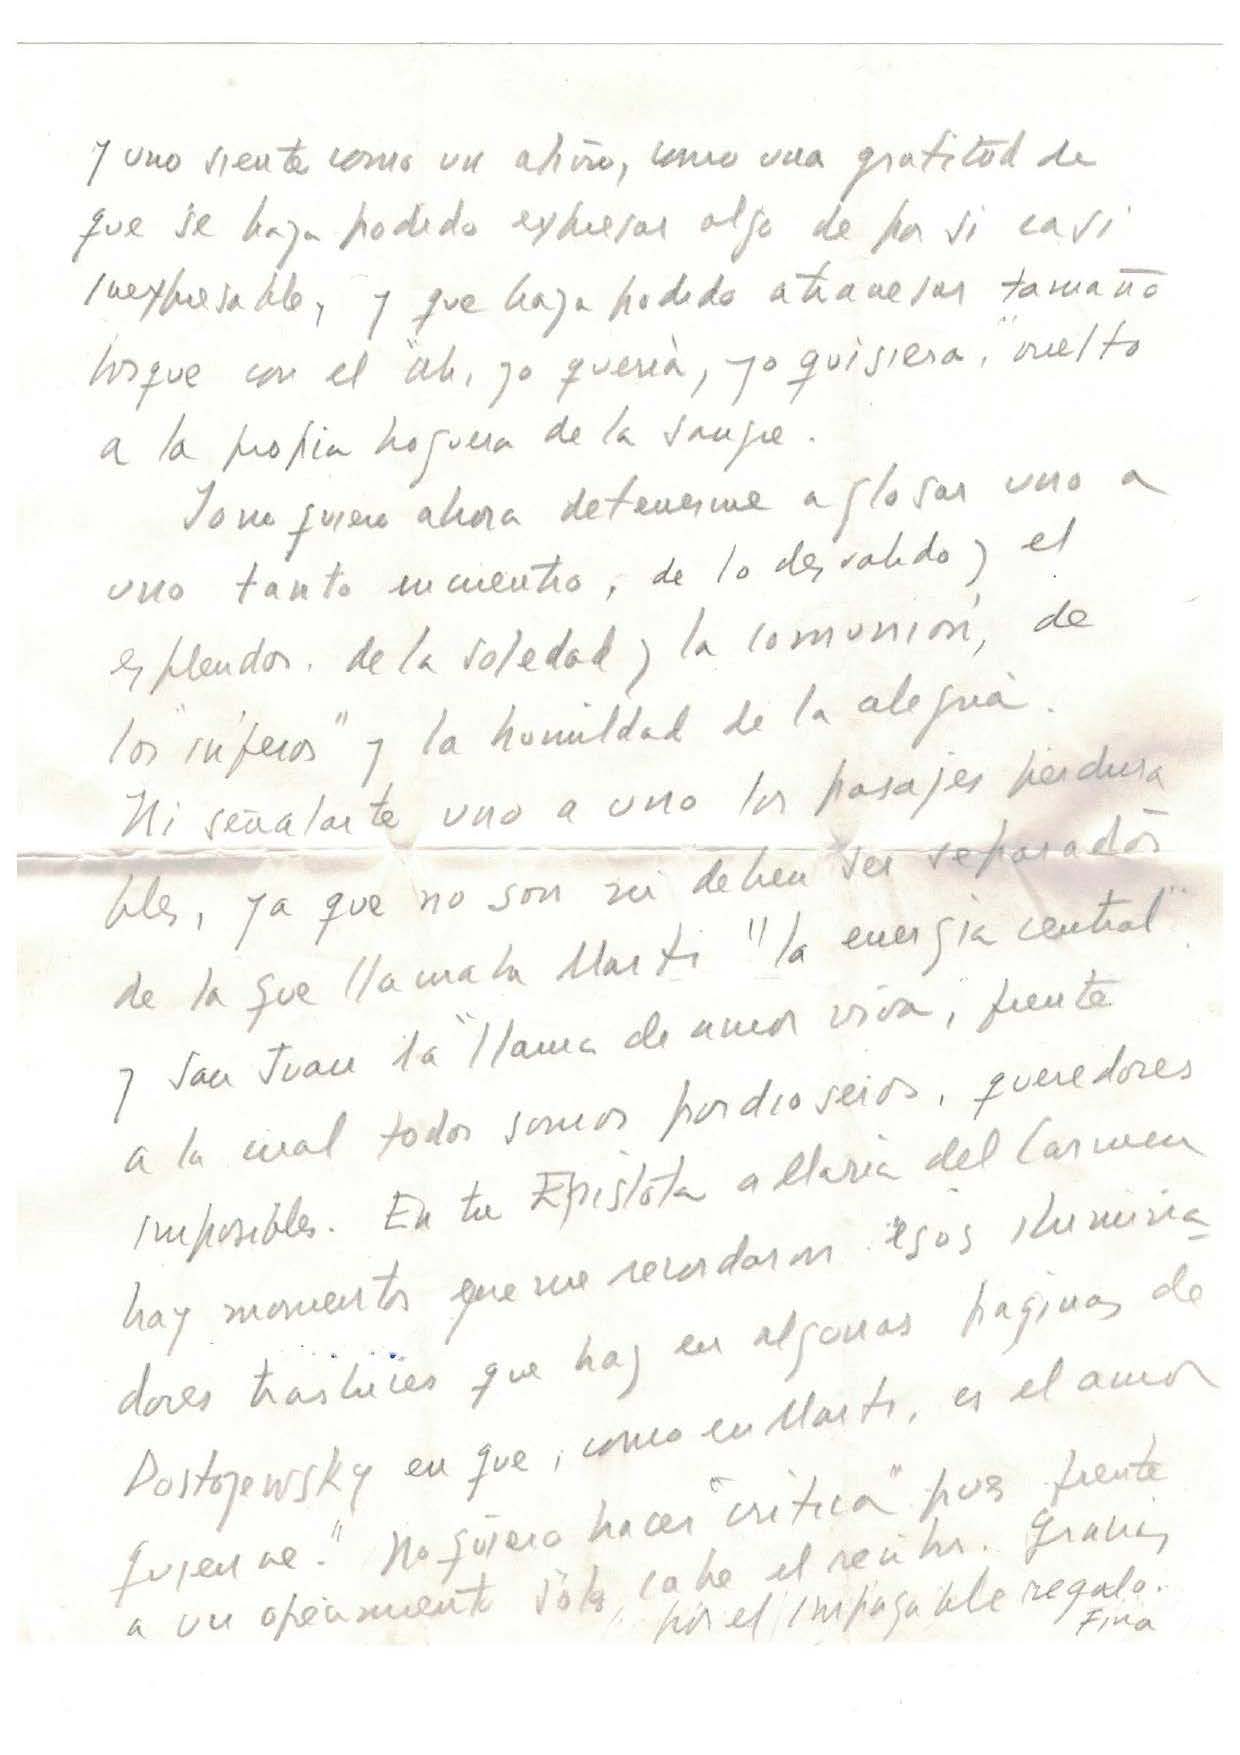 y uno siente como un alivio, como una gratitud de
que se haya podido expresar algo de por si casi
inexpresable, y que haya podido atravesar tamaño
bosque con el "ah, yo quería, yo quisiera," vuelto
a la propia hoguera de la sangre.
Yo no quiero ahora detenerme a glosar uno a
uno tanto encuentro, de lo desvalido y el
esplendor. de la soledad y la comunión, de
los "ínferos" y la humildad de la alegría.
Ni señalarte uno a uno los pasajes perdura
bles, ya que no son ni deben ser separados
de la que llamaba Martí "la energía central"
y San Juan la "llama de amor viva, frente
a la cual todos somos pordioseros, queredores
imposibles. En tu Epístola a María del Carmen
hay momentos que me recordaron esos ilumina-
dores trasluces que hay en algunas páginas de
Dostojewsky en que, como en Martí, es el amor
quien ve." No quiero hacer "crítica" pues frente
a un solo cabe el recibir. Gracias
por el impagable regalo.
Fina